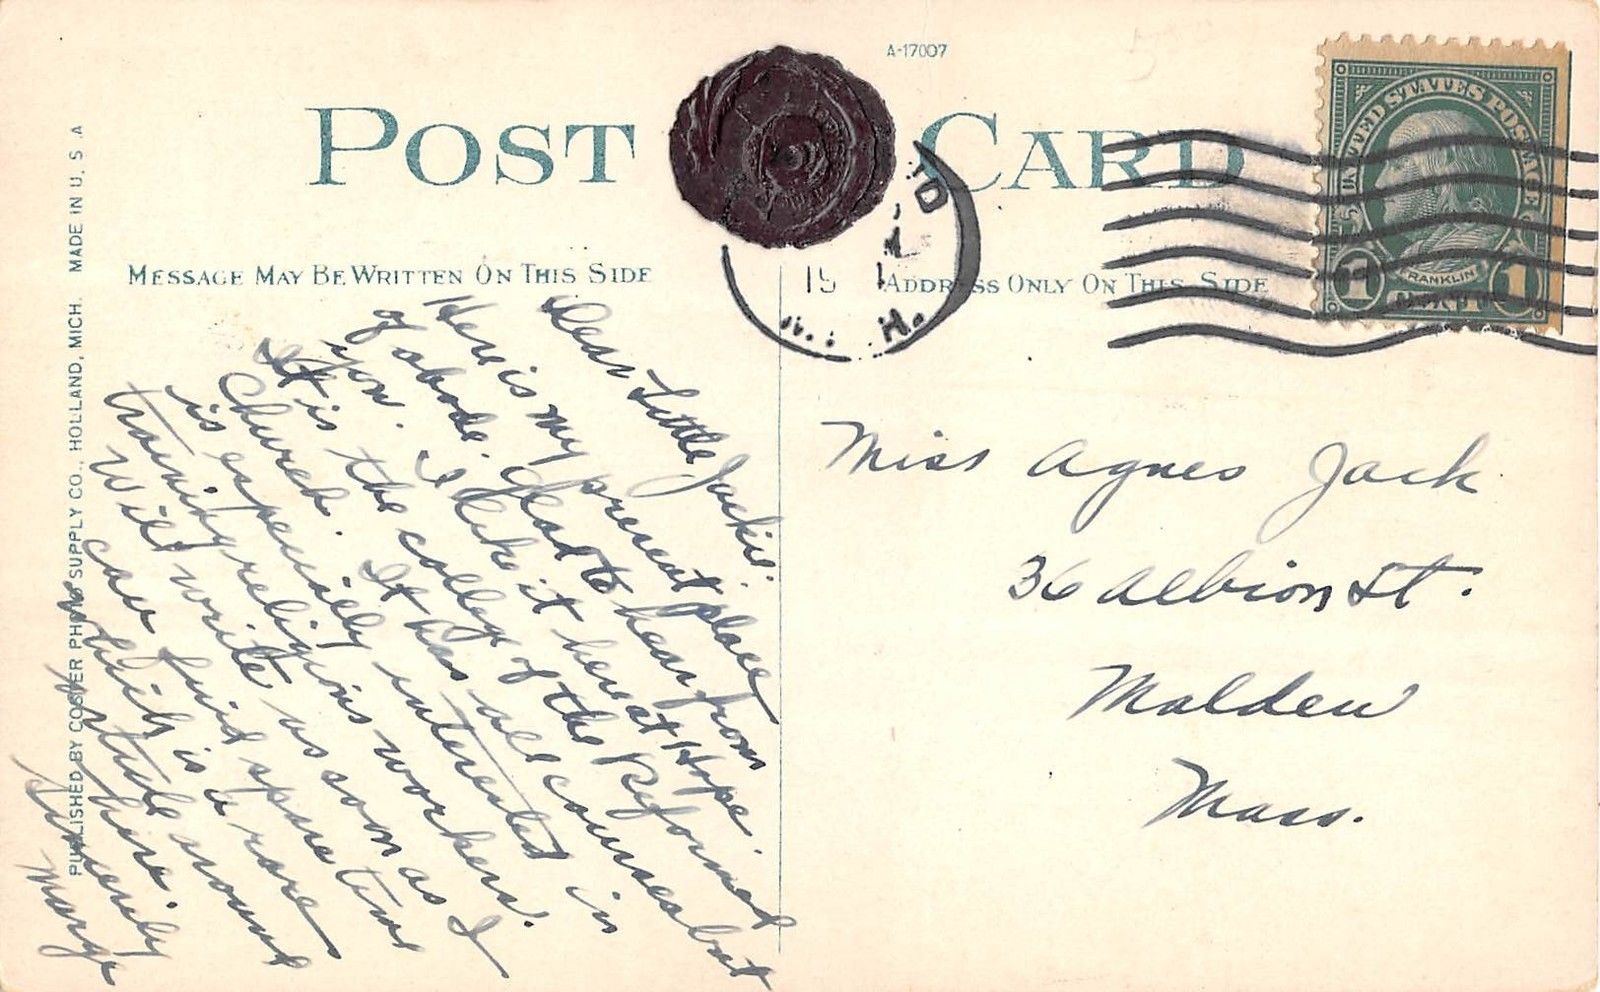 A-17007
POST CARD
MESSAGE MAY BE WRITTEN ON THIS SIDE
ADDRESS ONLY ON THIS SIDE
PUBLISHED BY COSTER PHOTO SUPPLY CO., HOLLAND, MICH. MADE IN U. S. A
UNITED STATES POSTAGE
FRANKLIN
1 1
Dear Little Jackie.
Here is my present place
of abode. Glad to hear from
you. I like it here at Hope.
It is the college of the Reformed
Church. It has all courses but
is especially interested in
training religious workers.
Will write as soon as I
can find spare time
which is a rare
article around
here.
Sincerely
Marge
Miss Agnes Jack
36 Albion St.
Malden
Mass.